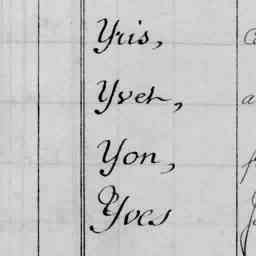 Yris,
Yver,
Yon,
Yves